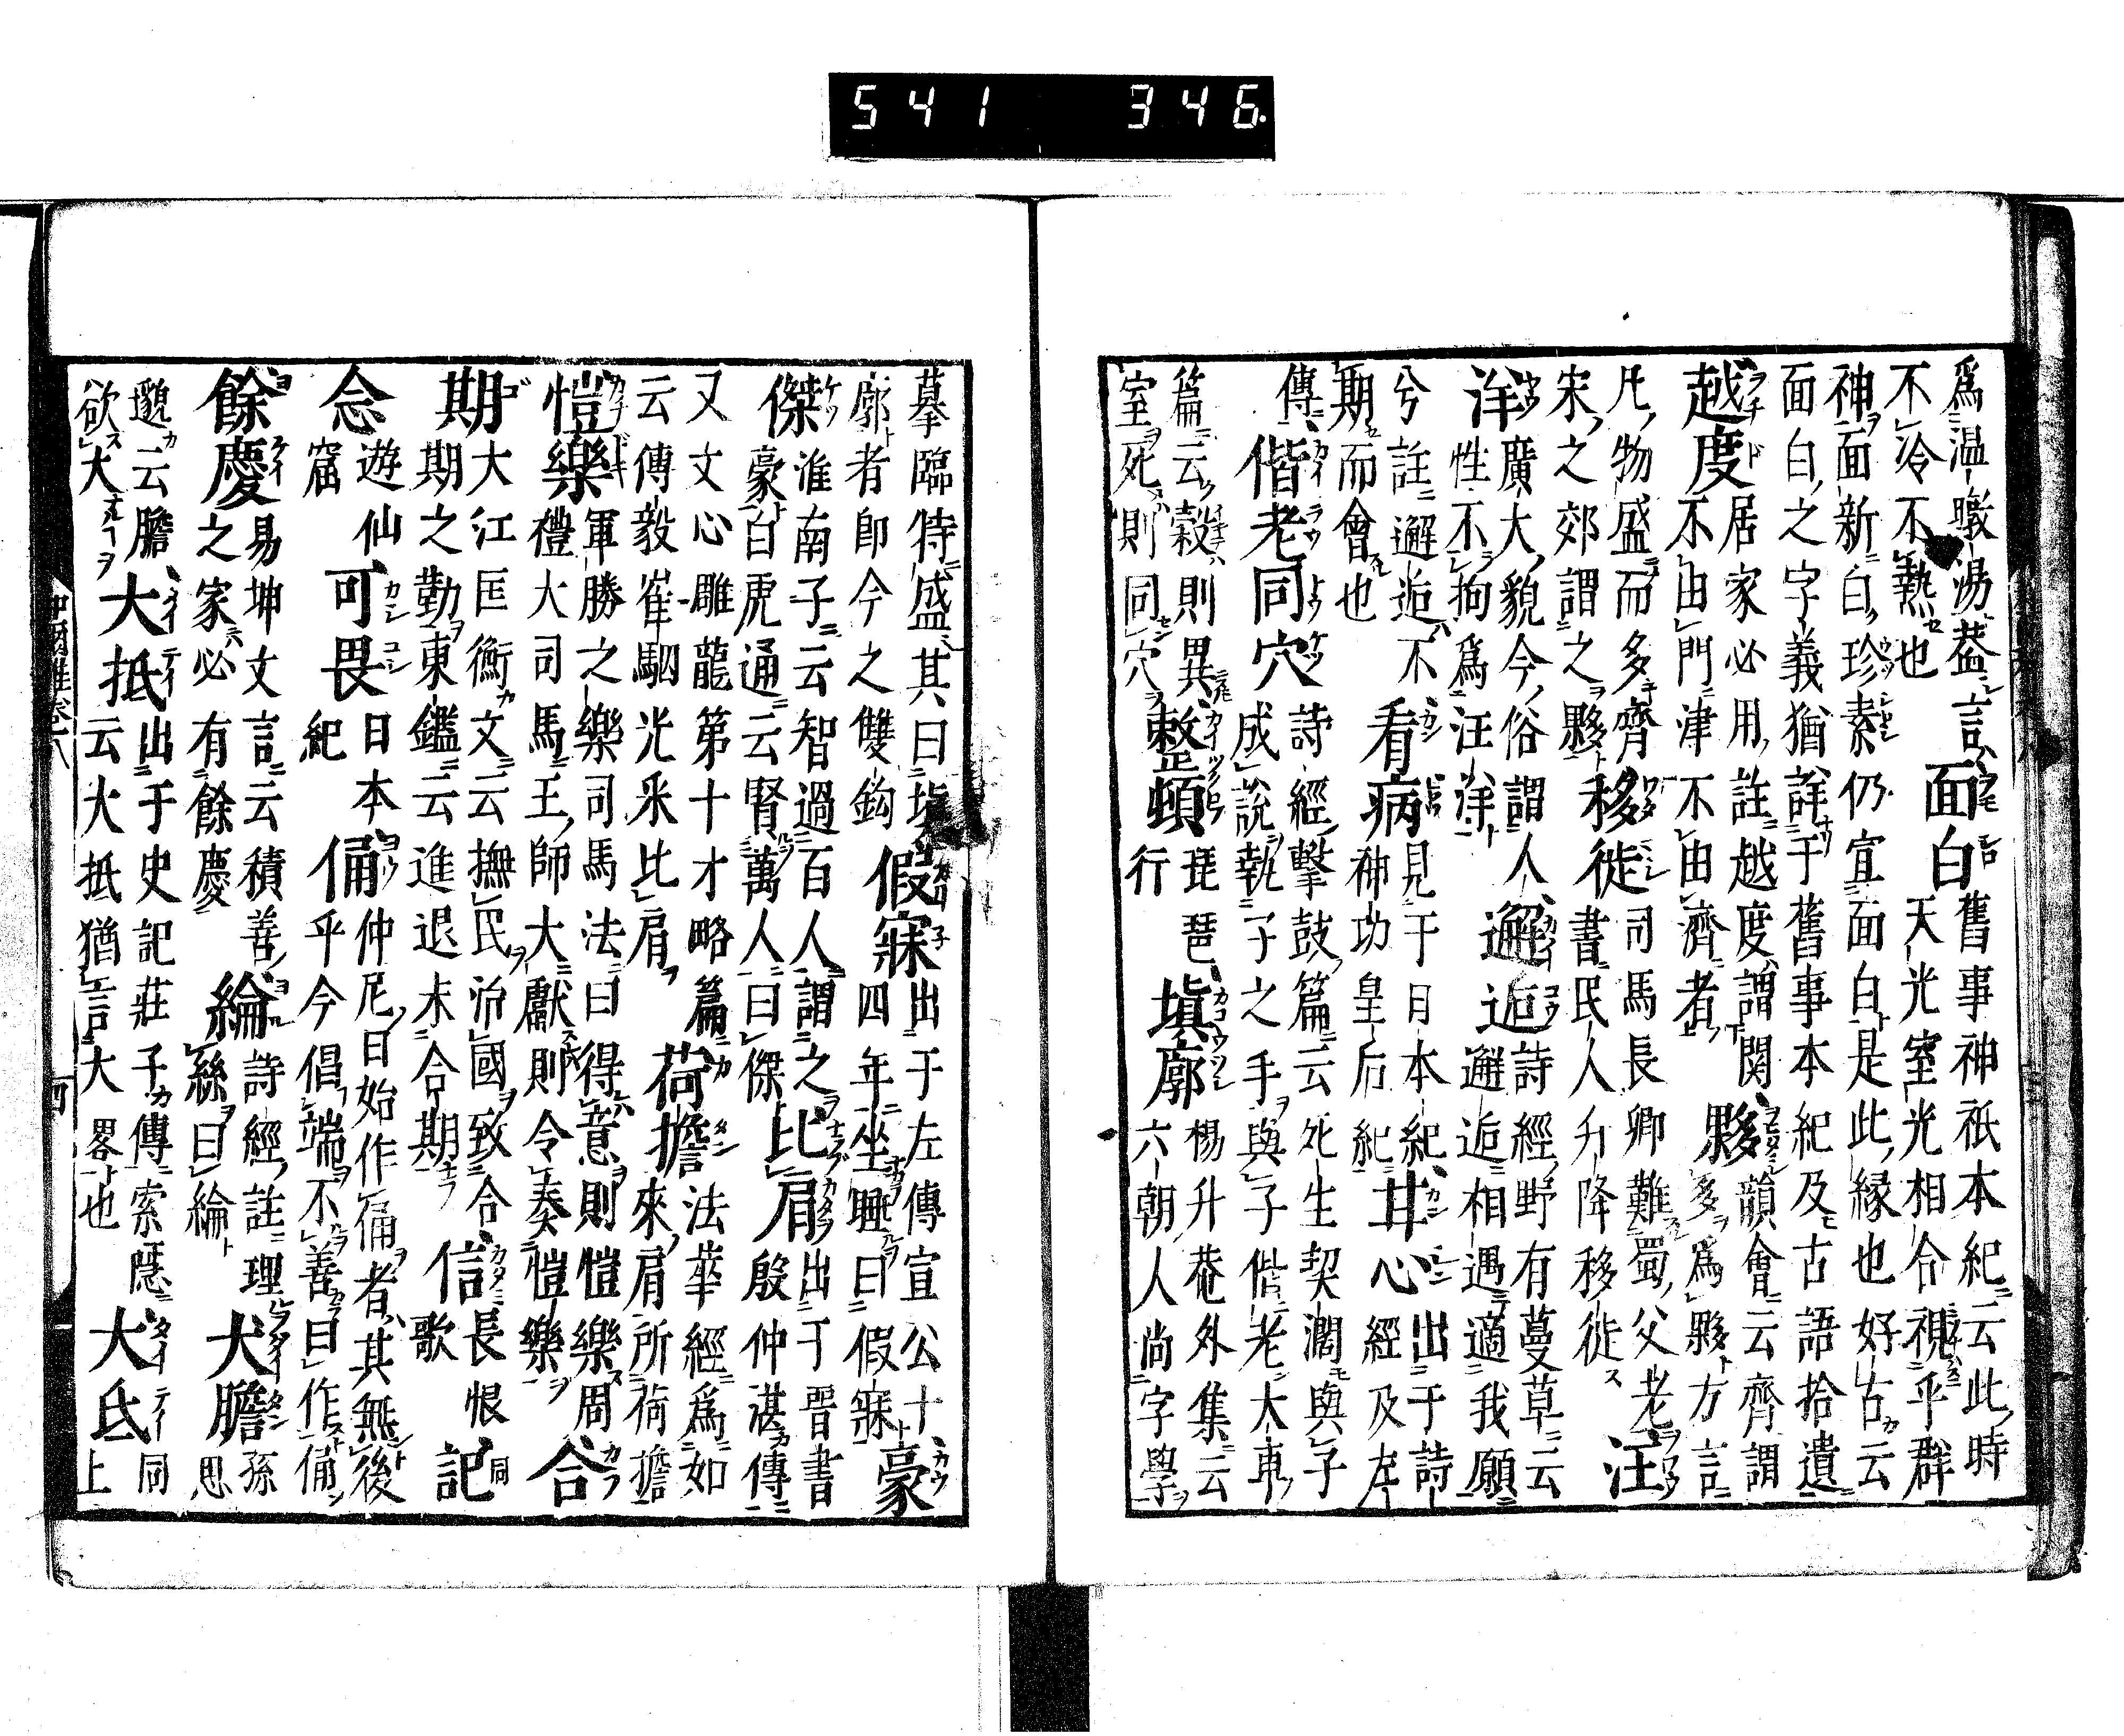 541 346
爲温暾湯蓋言面白舊事神祇本紀云此時
不冷不熱也天光室光相合視乎群
神面新白珍素仍宜面白是此縁也好古云
面白之字義猶詳于舊事本紀及古語拾遺
越度居家必用註越度謂関夥韻會云齊謂
不由門津不由濟者多爲夥方言
凡物盛而多齊移徙司馬長卿難蜀父老汪
宋之郊謂之夥書民人升降移徙
洋廣大貌今俗謂人邂逅詩經野有蔓草云
性不拘爲汪洋邂逅相遇適我願
兮註邂逅不看病見于日本紀甘心出于詩
期而會也神功皇后紀經及左
傳偕老同穴詩經擊鼓篇云死生契濶與子
成說執子之手與子偕老大車
篇云穀則異整頓琵琶填廓楊升菴外集云
室死則同穴行六朝人尚字學
摹臨特盛其曰填假寐出于左傳宣公十豪
廓者即今之雙鈎四年坐興曰假寐
傑淮南子云智過百人謂之比肩出于晋書
豪白虎通云賢萬人曰傑殷仲湛傳
又文心雕龍第十才略篇荷擔法華經爲如
云傳毅崔駰光采比肩來肩所荷擔
愷樂軍勝之樂司馬法曰得意則愷樂周合
禮大司馬王師大獻則令奏愷樂
期大江匡衡文云撫民治國致合信長恨記
期之勤東鑑云進退末合期歌
念遊仙可畏日本俑仲尼曰始作俑者其無後
窟紀乎今倡端不善曰作俑
餘慶易坤文言云積善綸詩經註理犬膽孫
之家必有餘慶絲曰綸思
邈云膽大抵出于史記莊子傳索隱大氐同
欲大云大抵猶言大畧也上